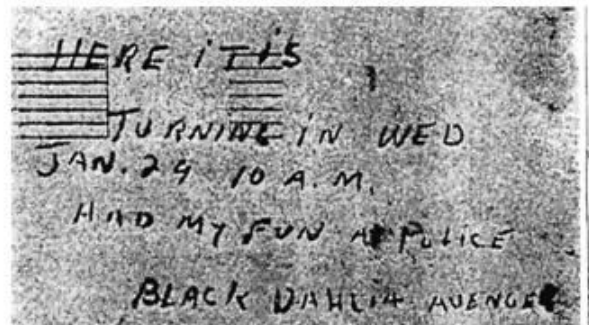 HERE iT iS
TURNING iN WED
JAN. 29 10 A.M.
HAD MY FUN AT POLICE
BLACK DAHLIA AVENGER